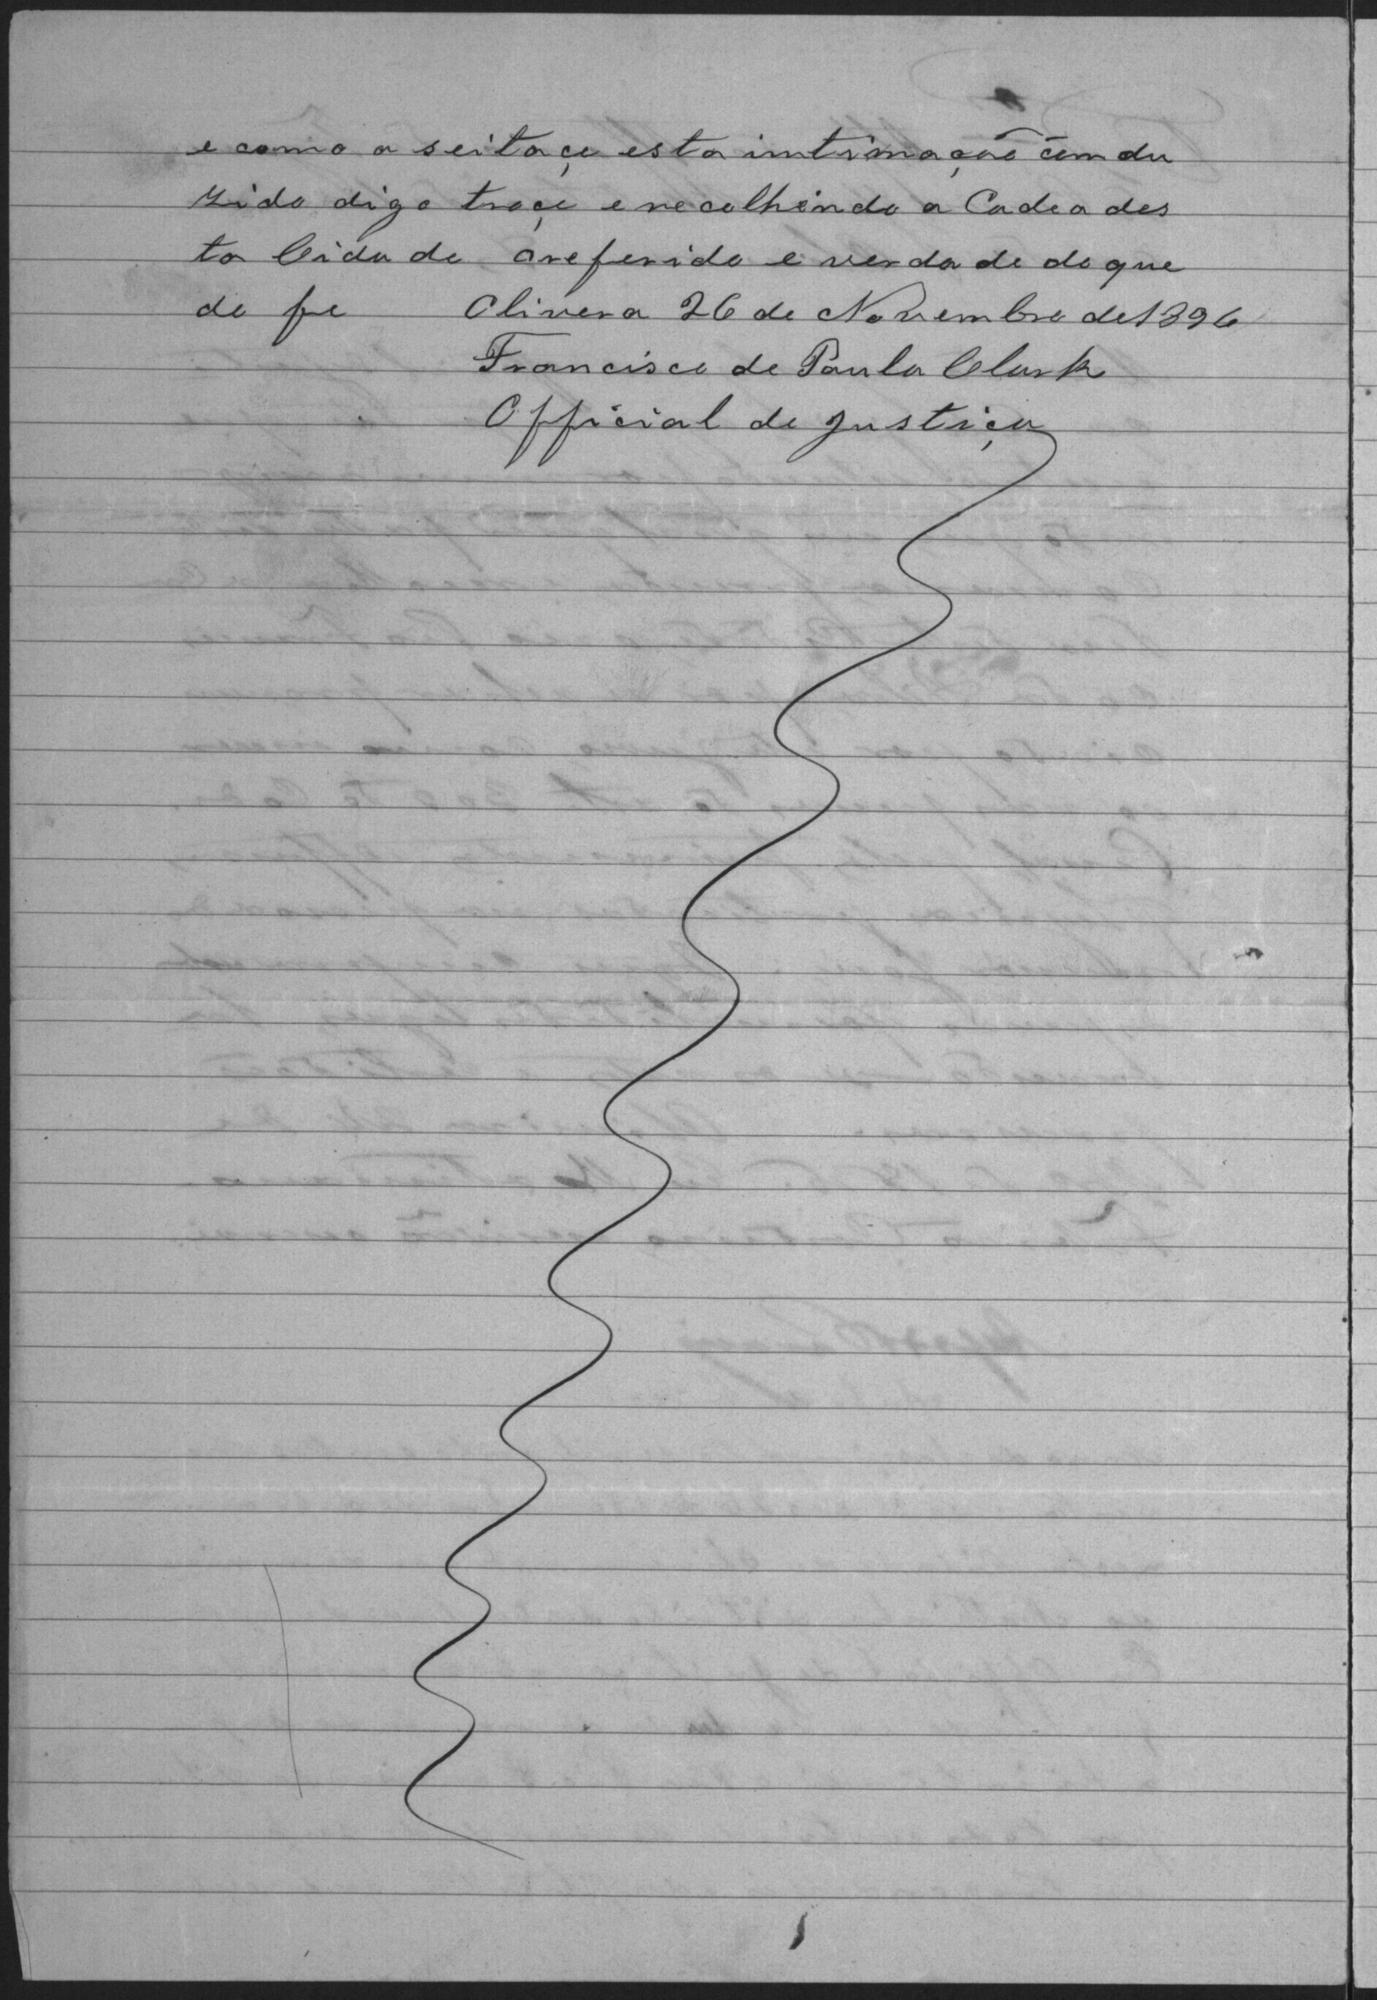 e como a seitaçe esta intimação comdu
zido digo traçe e recolhendo a Cadea des
ta Cidade o referido e verdade do que
do fe Olivera 26 de Novembro de 1896
Francisco de Paula Clark
Official de Justiça